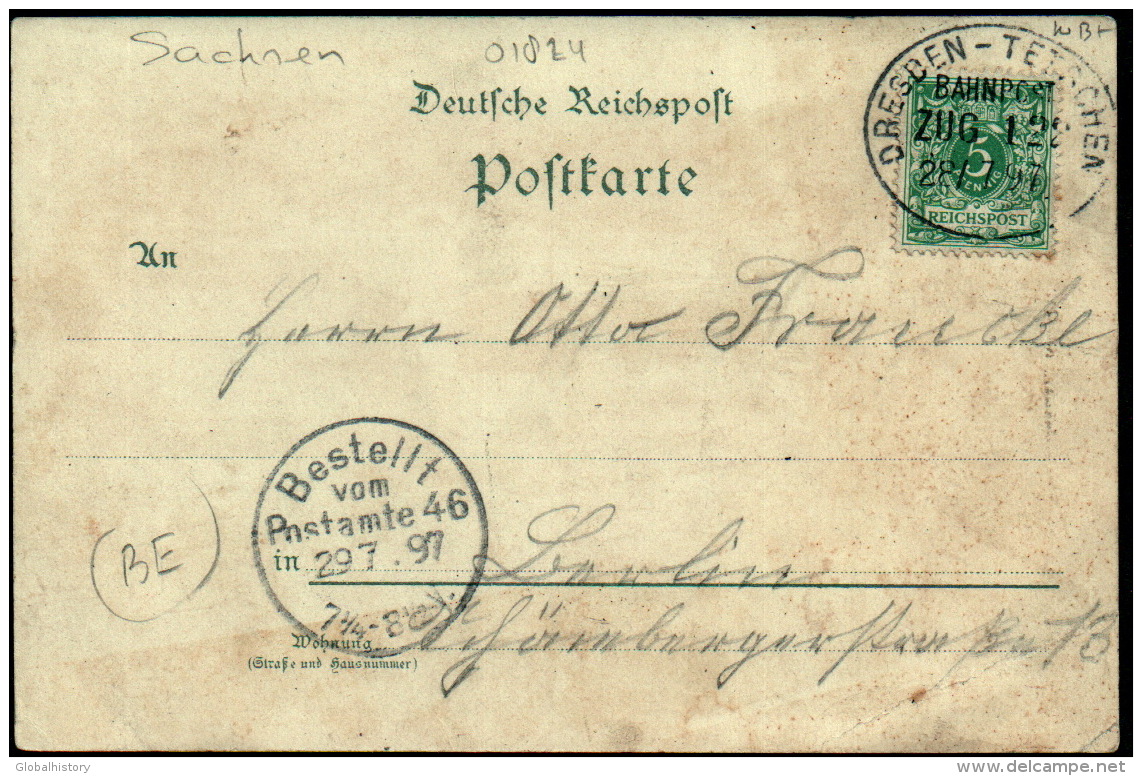 Sachsen 01824
Deutsche Reichspost
Postkarte
DRESDEN - TETSCHEN
BAHNPOST
ZUG
28/7 97
5
PFENNIG
REICHSPOST
An
Herrn Otto Francke
Bestellt
vom
Postamte 46
29 7. 97
7¼-8½V.
(BE)
in Berlin
Wohnung
(Straße und Hausnummer)
Globalhistory
delcampe.net